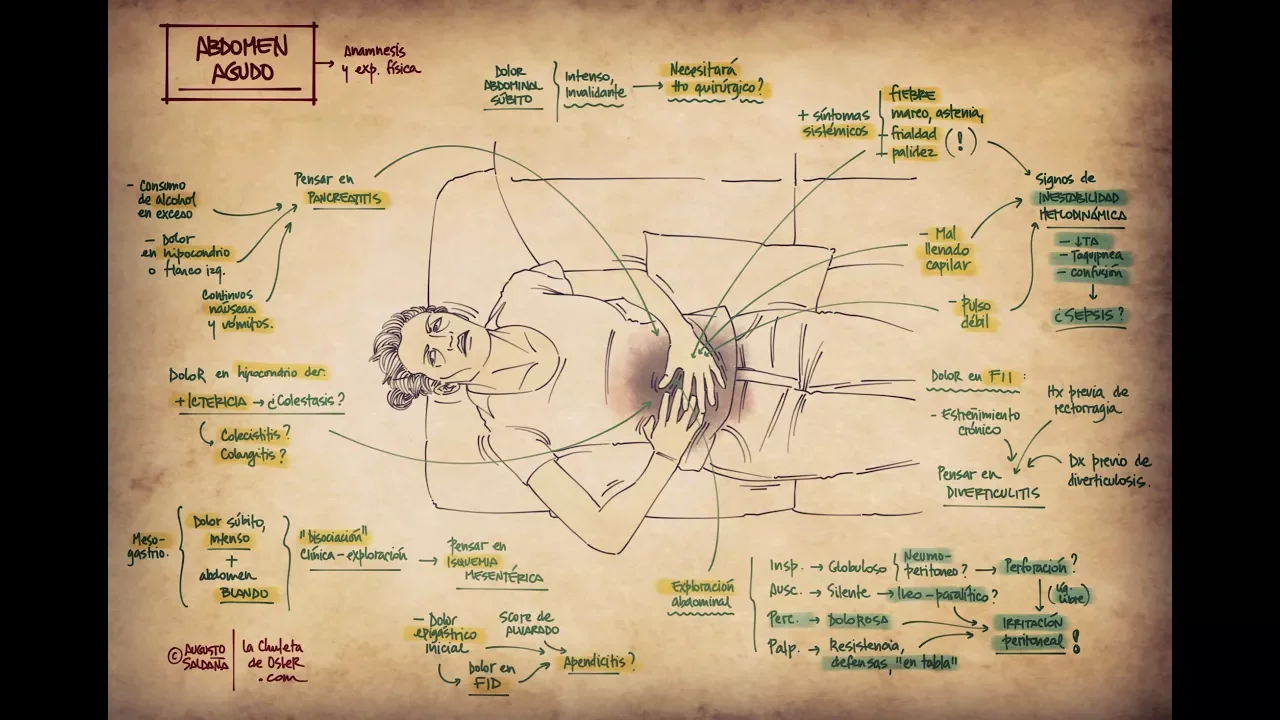 ABDOMEN
AGUDO
Anamnesis
y exp. física
DOLOR
ABDOMINAL
SÚBITO
Intenso,
Invalidante
Necesitará
tto quirúrgico?
+ síntomas
sistémicos
FIEBRE
mareo, astenia,
frialdad
palidez
(!)
Signos de
INESTABILIDAD
HEMODINÁMICA
- ↓TA
- Taquipnea
- confusión
¿SEPSIS?
- Mal
llenado
capilar
- Pulso
débil
- Consumo
de alcohol
en exceso
- Dolor
en hipocondrio
o flanco izq.
Continuos
náuseas
y vómitos.
Pensar en
PANCREATITIS
DOLOR en hipocondrio der.
+ ICTERICIA → ¿Colestasis?
Colecistitis?
Colangitis?
Dolor en FII :
- Estreñimiento
crónico
Hx previa de
rectorragia
Dx previo de
diverticulosis.
Pensar en
DIVERTICULITIS
Meso-
gastrio.
Dolor súbito,
intenso
+
abdomen
BLANDO
"Disociación"
Clínica - exploración
Pensar en
ISQUEMIA
MESENTÉRICA
- Dolor
epigástrico
inicial
Score de
ALVARADO
Dolor en
FID
Apendicitis?
Exploración
abdominal
Insp. → Globuloso
Neumo-
peritoneo? → Perforación?
(va.
libre)
Ausc. → Silente → Íleo-paralítico?
Perc. → DOLOROSA
Palp. → Resistencia,
defensas, "en tabla"
IRRITACIÓN
peritoneal !
© AUGUSTO
SALDAÑA
La Chuleta
de Osler
.com